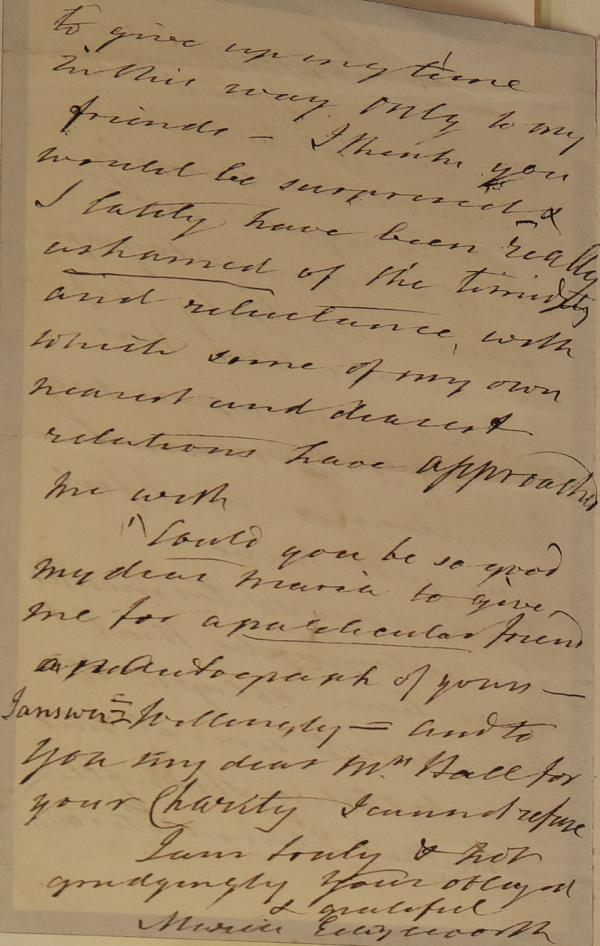 to give up my time
in this way only to my
friends – I think you
would be surprised &
I lately have been really
ashamed of the timidity
and reluctance, with
which some of my own
nearest and dearest
relations have approached
me with
"Could you be so good
my dear Maria to give
me for a particular friend
an Autograph of yours —
I answer = Willingly = and to
you my dear Mrs Hall for
your Charity I cannot refuse
I am truly & not
grudgingly your obliged
& grateful
Maria Edgeworth